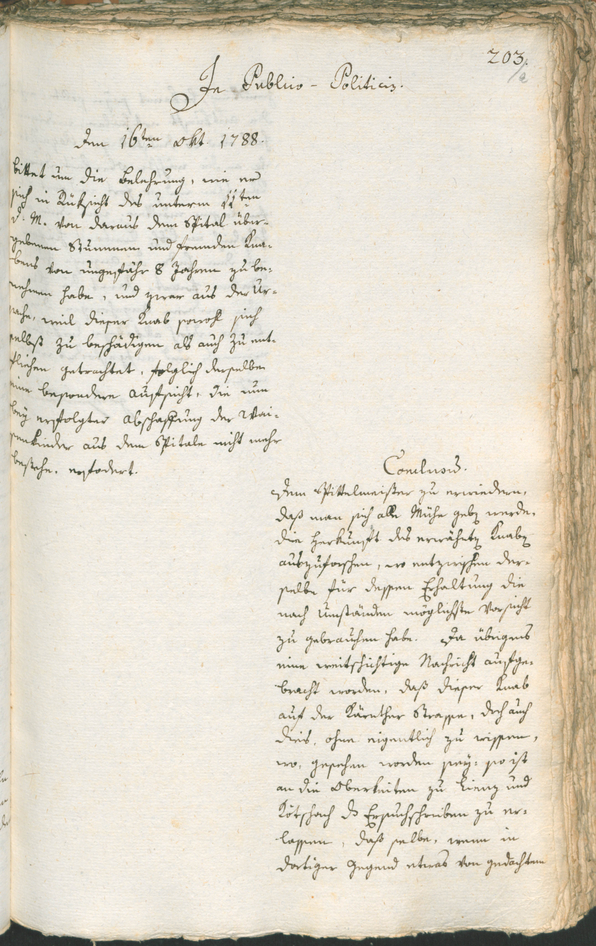 203.
In Publico-Politicis.
Den 16ten Okt 1788.
bittet um die Belehrung, wie er
sich in Rüksicht des unterm 11ten
d. M. von daraus dem Spital über-
gebenen Stummen und fremden Kna-
bens von ungefähr 8 Jahren zu be-
nehmen habe, und zwar aus der Ur-
sache, weil dieser Knab sowohl sich
selbst zu beschädigen als auch zu ent-
fliehen getrachtet, folglich derselbe
eine besondere Aufsicht, die nun
bey erfolgter Abschaffung der Wai-
senkinder aus dem Spitale nicht mehr
bestehe, erfodert.
Conclusum.
Dem Spittelmeister zu erwiedern,
daß man sich alle Mühe geben werde,
die Herkunft des erwähnten Knaben
auszuforschen, wo entzwischen der-
selbe für dessen Erhaltung die
nach Umständen möglichste Vorsicht
zu gebrauchen habe. Da übrigens
eine weitschichtige Nachricht aufge-
bracht worden, daß dieser Knab
auf der Kärnther Strasse, doch auch
dies, ohne eigentlich zu wissen,
wo, gesehen worden sey: so ist
an die Oberkeiten zu Lienz und
Kötschach das Ersuchschreiben zu er-
lassen, daß selbe, wenn in
dortiger Gegend etwas von gedachtem